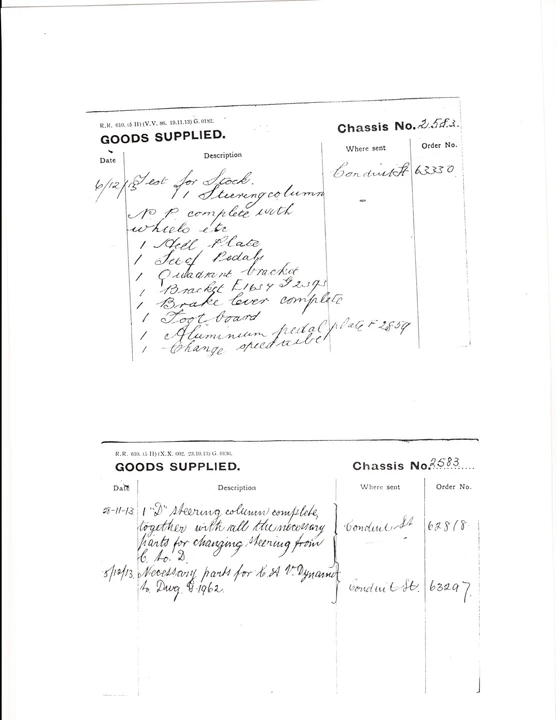 R.R. 610. (5 H) (V.V. 86. 19.11.13) G. 0182.
GOODS SUPPLIED.
Chassis No. 2583.
Date Description Where sent Order No.
6/12/13 Test for Stock. Conduit St 63330
1 Steering column
N P. complete with
wheels etc
1 Heel Plate
1 Set of Pedals
1 Quadrant bracket
1 Bracket E1634
1 Brake lever complete
1 Foot board
1 Aluminium pedal plate F 2859
1 Change speed
R.R. 610. (5 H) (X.X. 602. 23.10.13) G. 0136.
GOODS SUPPLIED.
Chassis No. 2583
Date Description Where sent Order No.
28-11-13. 1 "D" steering column complete,
together with all the necessary Conduit St 62818
parts for changing steering from
C. to. D.
5/12/13. Necessary parts for C A V. Dynamo
to Dwg. 1962. Conduit St. 63297.